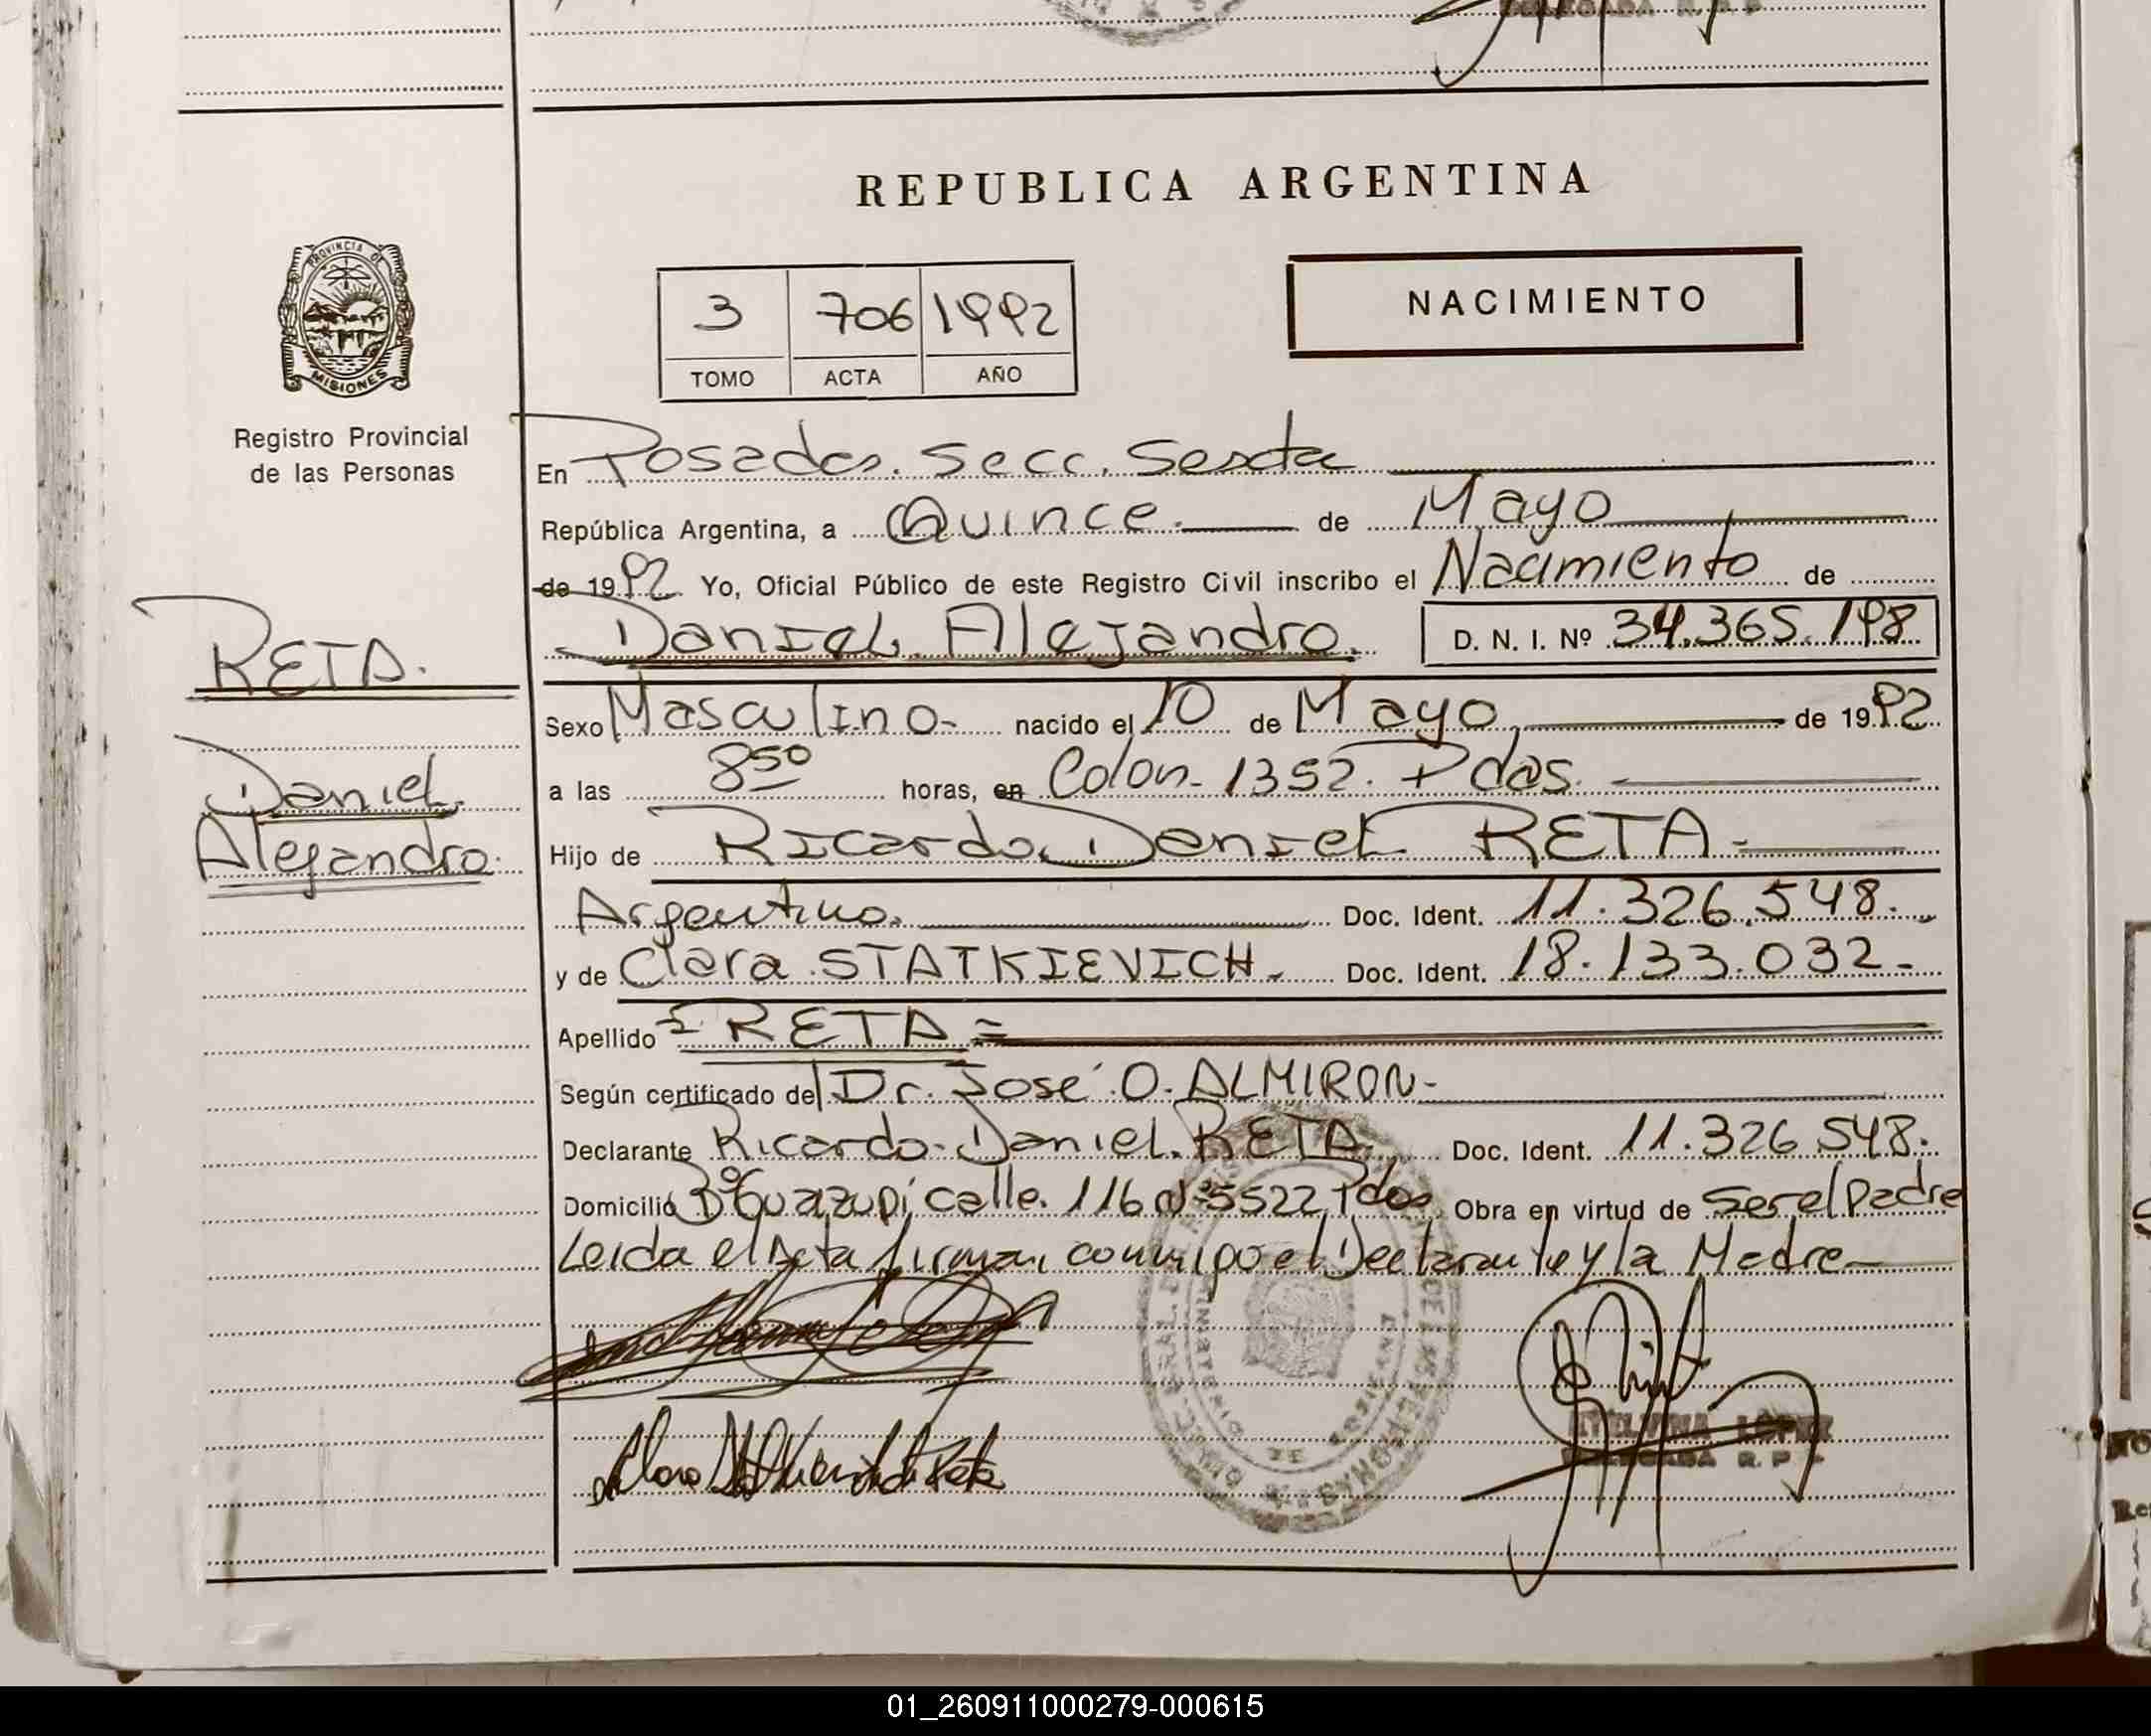 REPUBLICA ARGENTINA
PROVINCIA DE
MISIONES
Registro Provincial
de las Personas
3 706 1992
TOMO ACTA AÑO
NACIMIENTO
En Posadas. Secc. Sexta
República Argentina, a Quince. de Mayo
de 1992 Yo, Oficial Público de este Registro Civil inscribo el Nacimiento de
Daniel Alejandro. D. N. I. Nº 34.365.198
RETA.
Sexo Masculino- nacido el 10 de Mayo de 1992
Daniel
Alejandro.
a las 8⁵⁰ horas, en Colon- 1352. Pdas.
Hijo de Ricardo Daniel RETA-
Argentino. Doc. Ident. 11.326.548.
y de Clara STATKIEVICH. Doc. Ident. 18.133.032-
Apellido = RETA =
Según certificado del Dr. José O. ALMIRON-
Declarante Ricardo Daniel RETA Doc. Ident. 11.326.548.
Domicilio Bº Guazupí calle. 116 nº 5522 Pdas Obra en virtud de Ser el Padre
Leida el Acta firman conmigo el Declarante y la Madre
ETELVINA LOPEZ
DELEGADA R. P. P
01_260911000279-000615